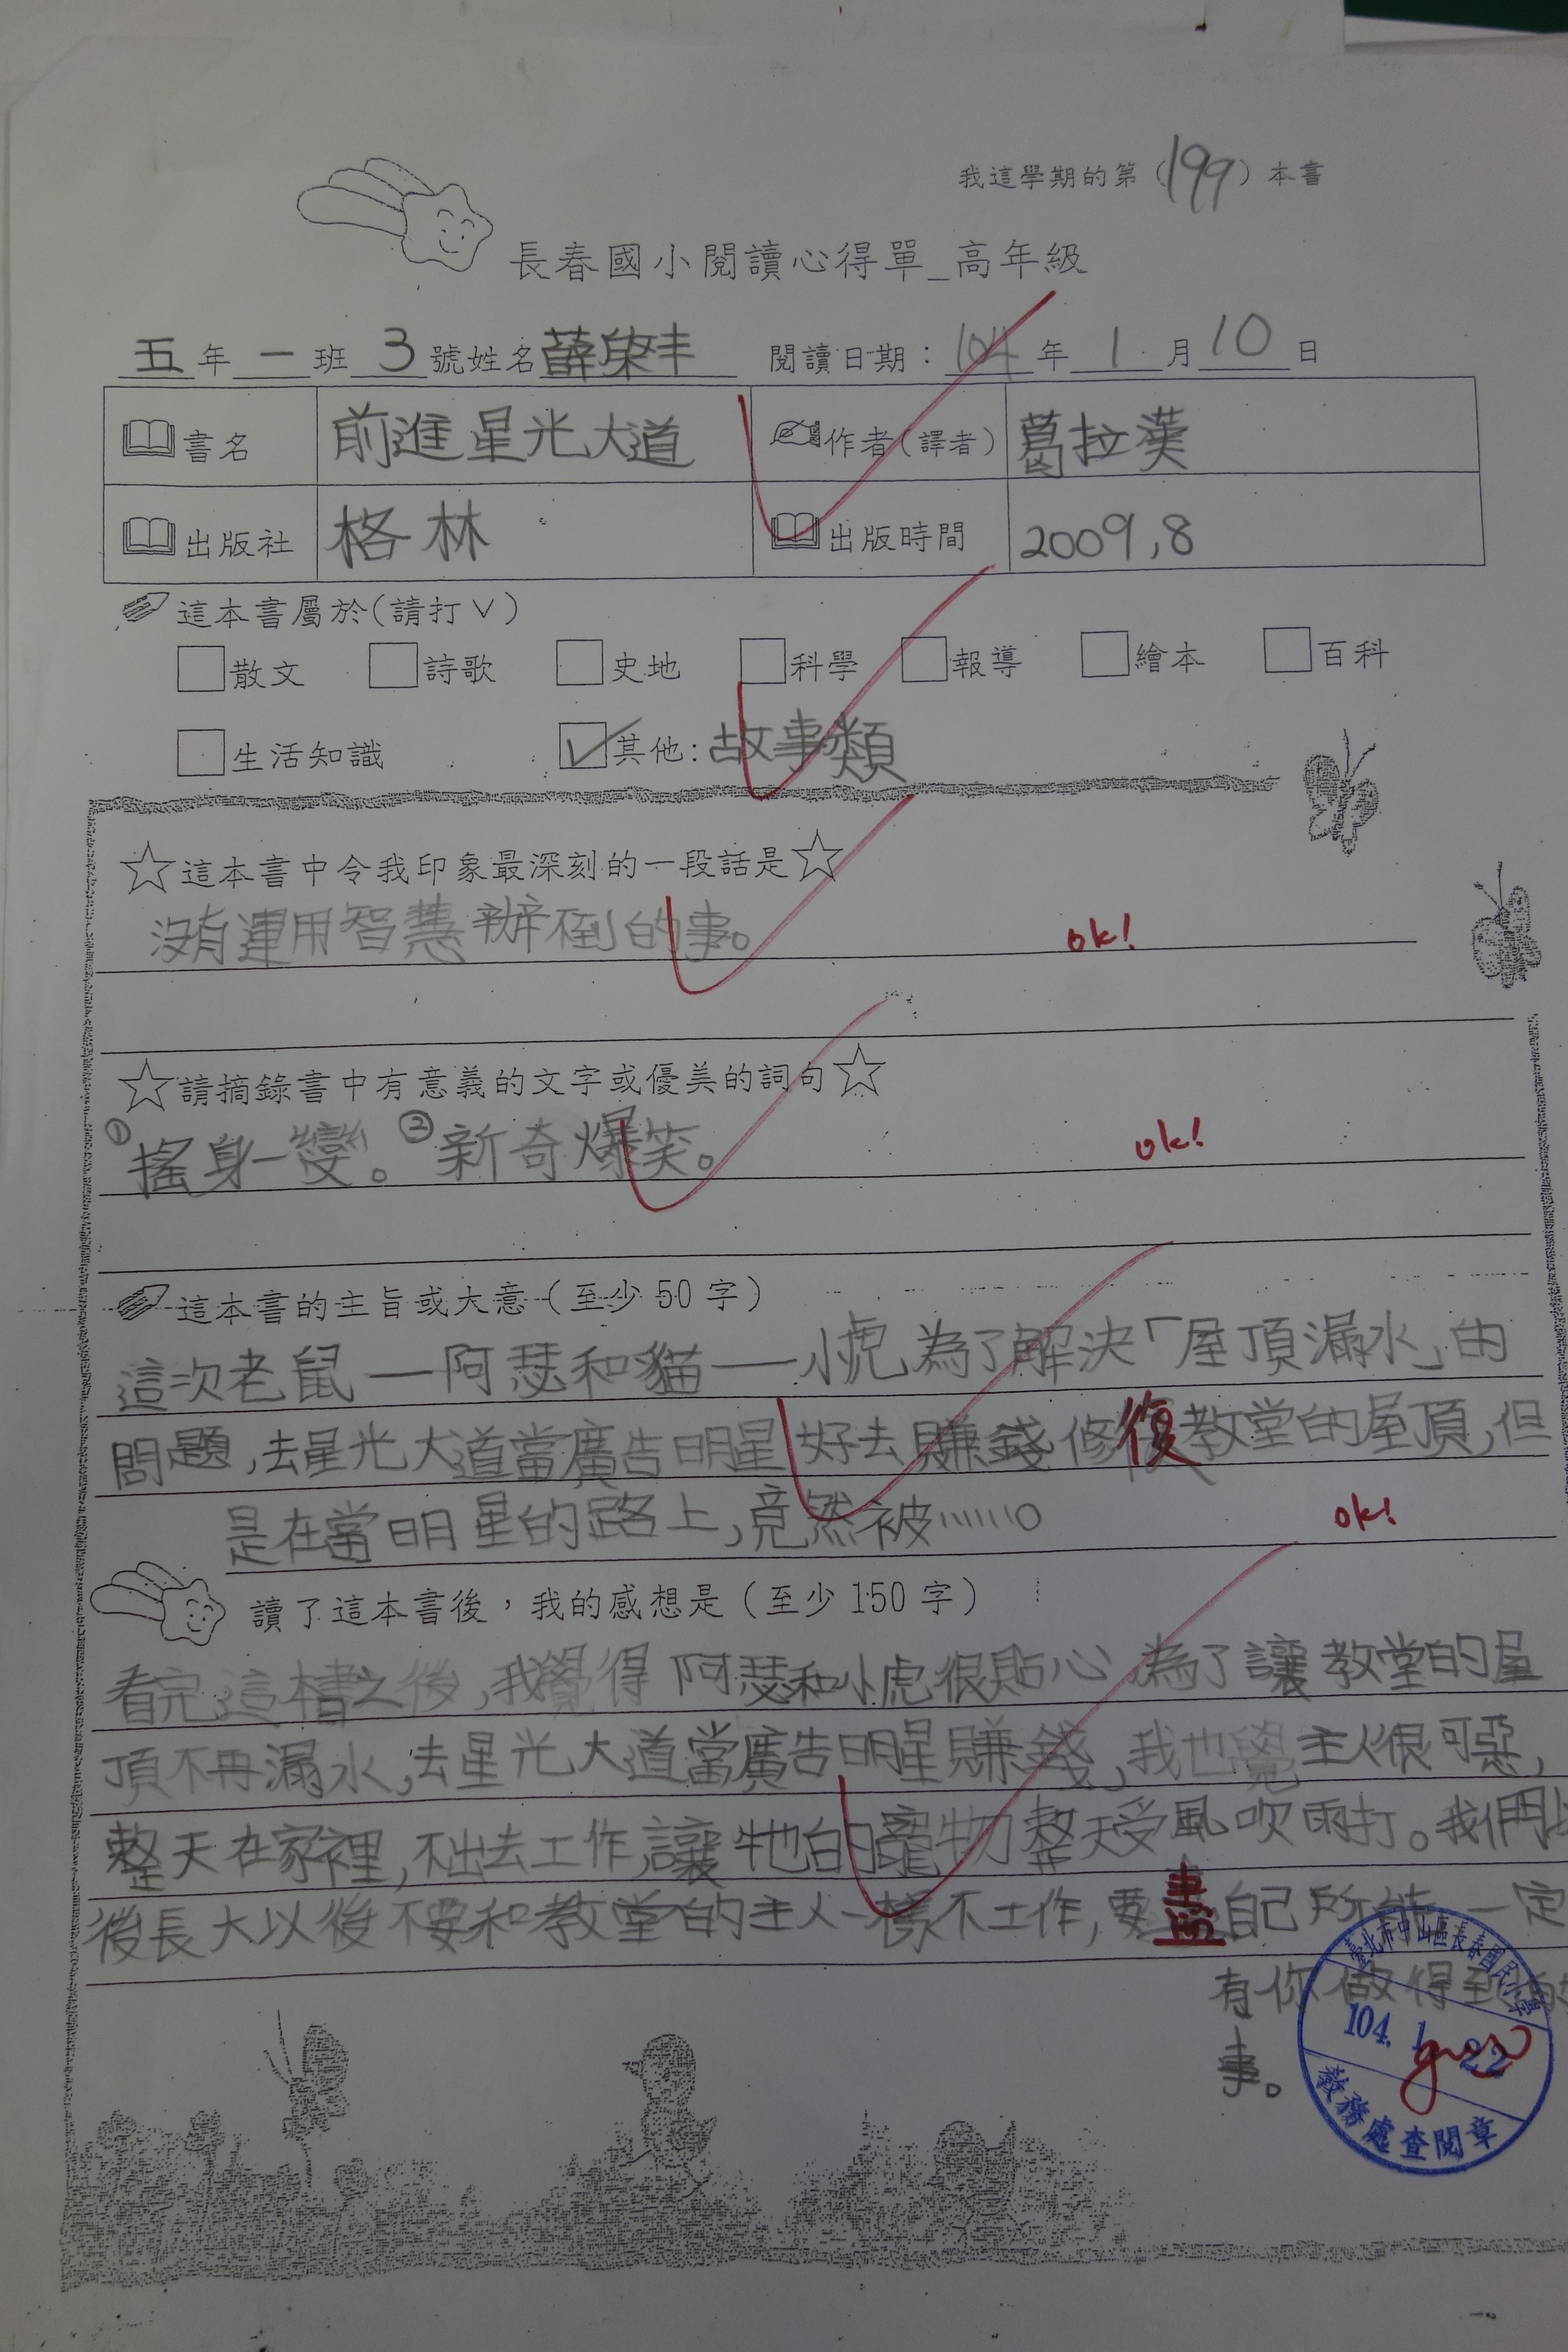 我這學期的第（199）本書
長春國小閱讀心得單_高年級
五年一班3號姓名薛棨丰 閱讀日期：104年1月10日
書名 前進星光大道 作者（譯者） 葛拉漢
出版社 格林 出版時間 2009,8
這本書屬於（請打ˇ）
散文 詩歌 史地 科學 報導 繪本 百科
生活知識 其他：故事類
☆這本書中令我印象最深刻的一段話是☆
沒有運用智慧辦不到的事。 ok!
☆請摘錄書中有意義的文字或優美的詞句☆
①搖身一變。②新奇爆笑。 ok!
這本書的主旨或大意（至少50字）
這次老鼠—阿瑟和貓——小虎為了解決「屋頂漏水」的
問題,去星光大道當廣告明星好去賺錢修復教堂的屋頂,但
是在當明星的路上,竟然被……。 ok!
讀了這本書後，我的感想是（至少150字）
看完這本書之後,我覺得阿瑟和小虎很貼心,為了讓教堂的屋
頂不再漏水,去星光大道當廣告明星賺錢,我也覺主人很可惡,
整天在家裡,不出去工作,讓牠的寵物整天受風吹雨打。我們以
後長大以後不要和教堂的主人一樣不工作,要盡自己所能一定
有你做得到的
事。
臺北市中山區長春國民小學
104. 1. 22
教務處查閱章